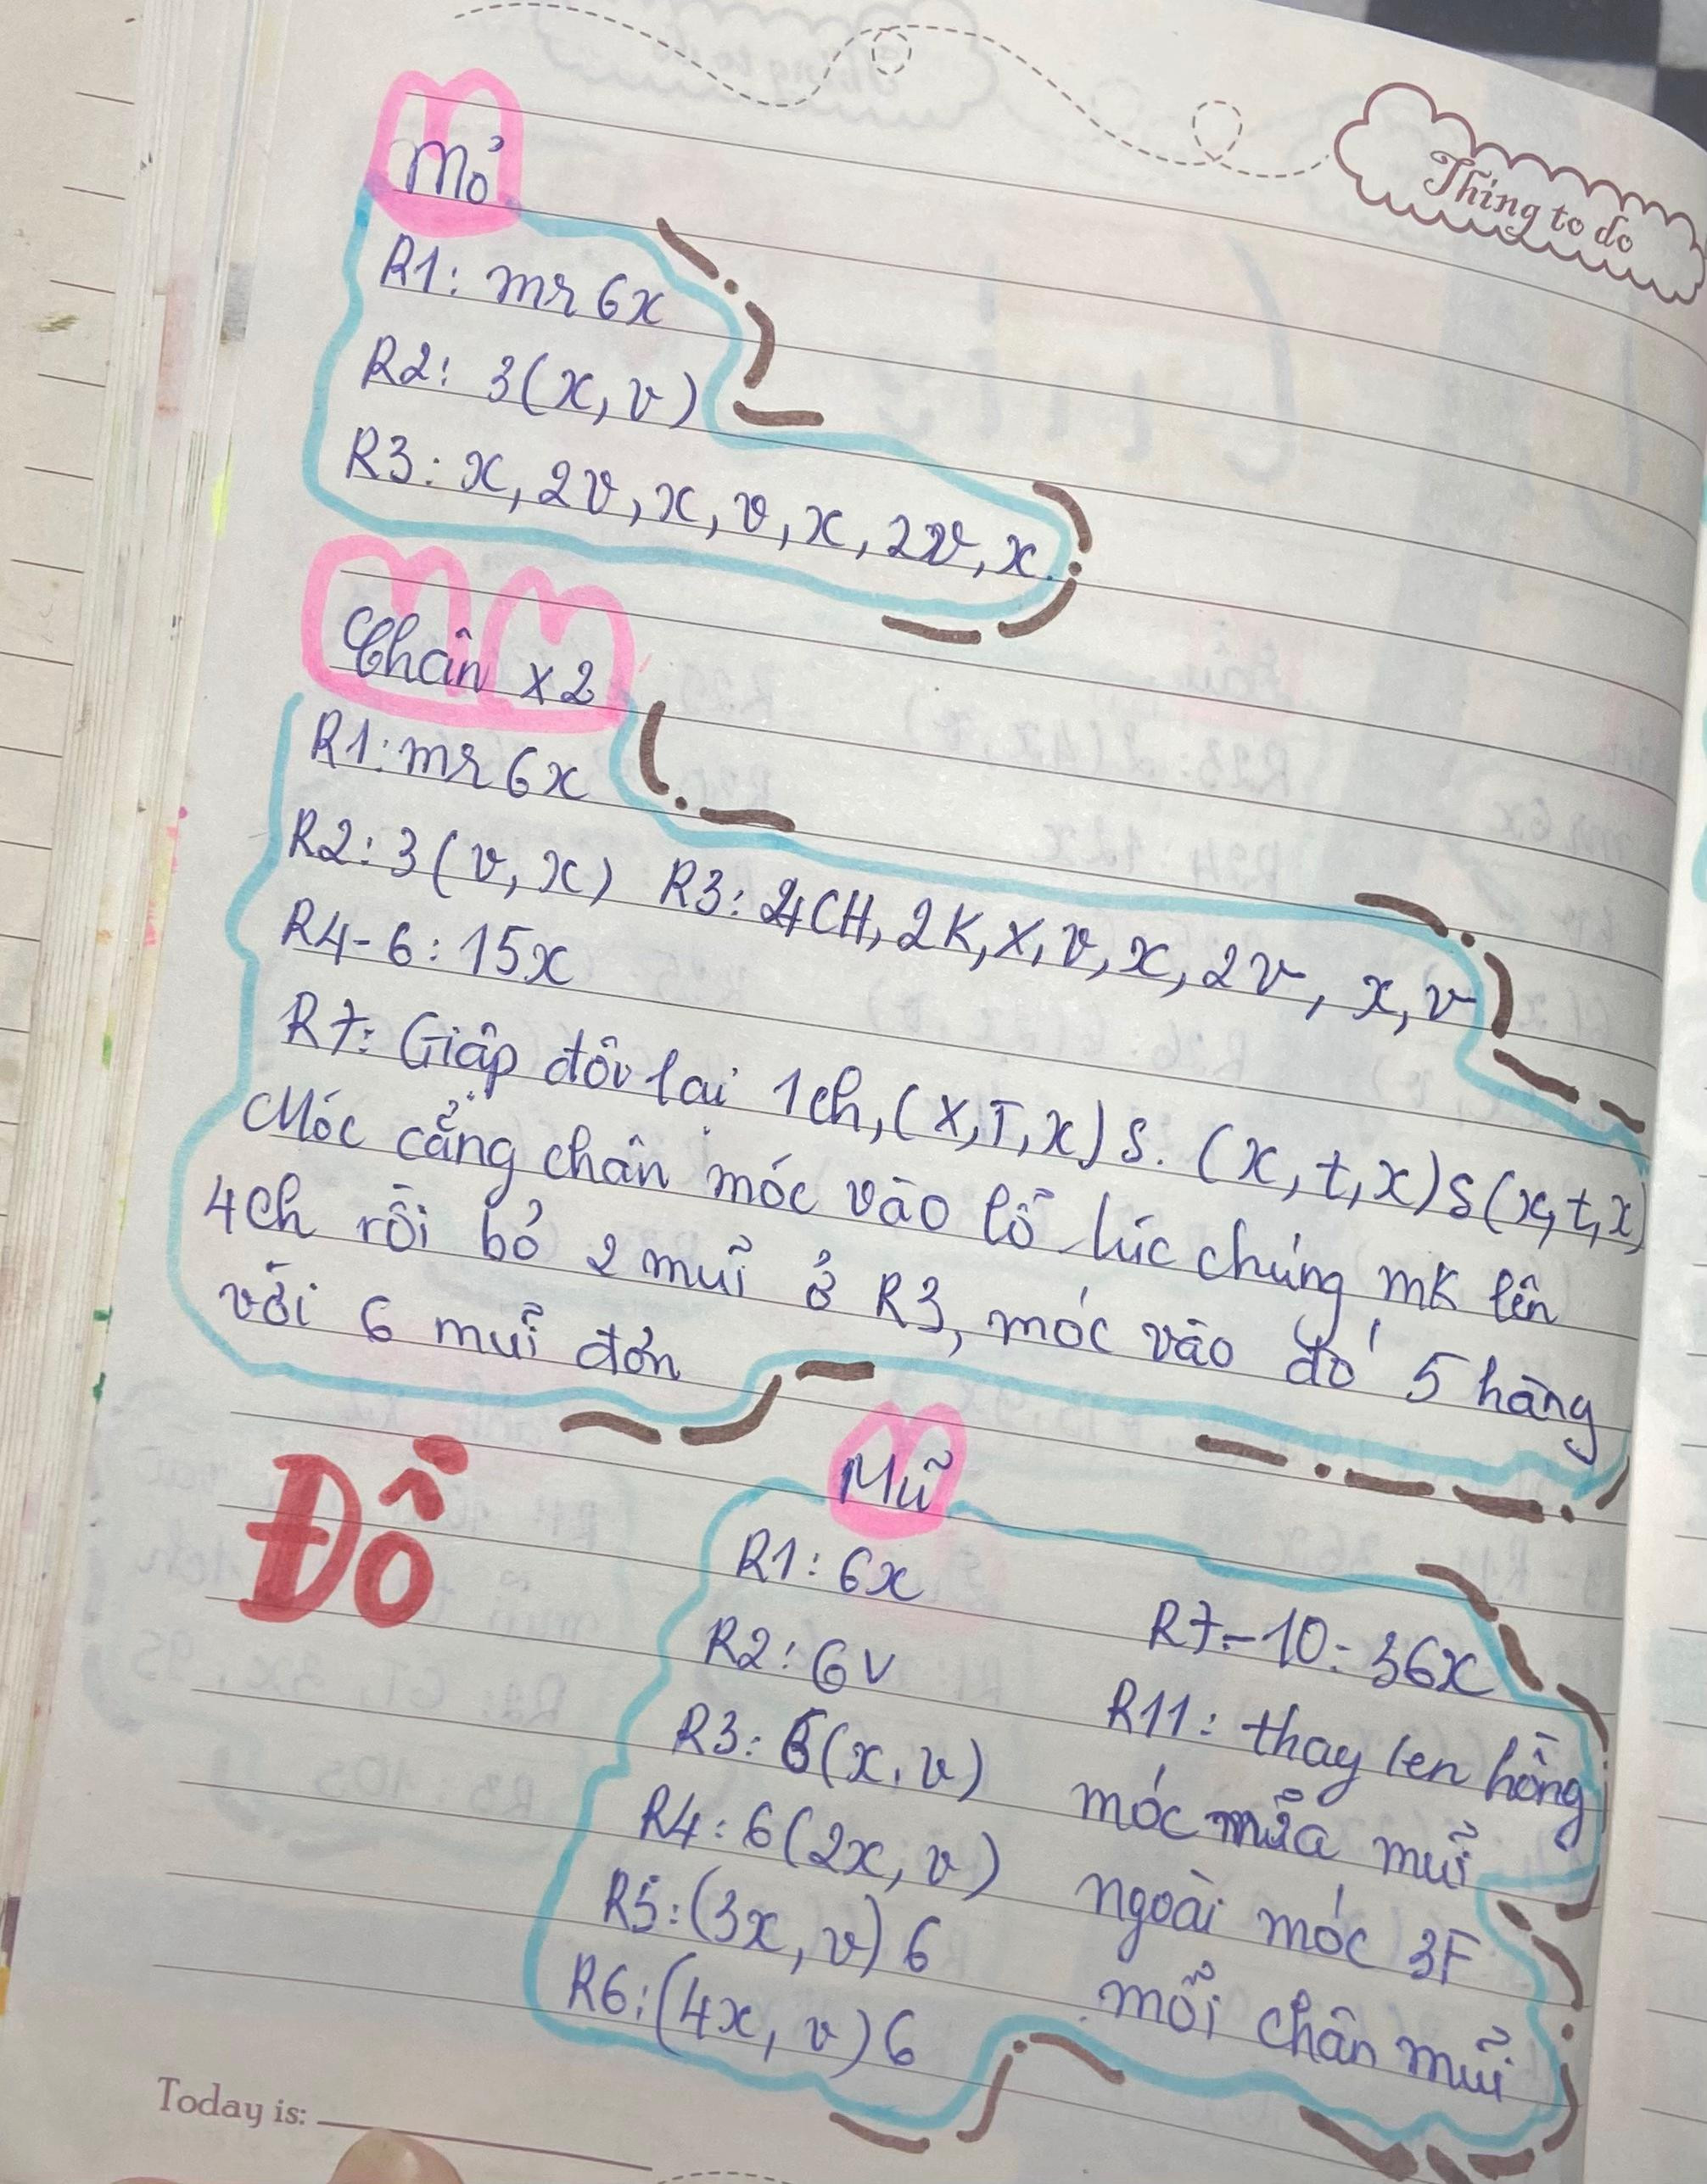 Thing to do
Mỏ
R1: mr 6x
R2: 3(x, v)
R3: x, 2v, x, v, x, 2v, x.
Chân x2
R1: mr 6x
R2: 3(v, x) R3: 4CH, 2K, x, v, x, 2v, x, v
R4-6: 15x
R7: Giập đôi lại 1ch, (x, T, x) S. (x, t, x) S (x, t, x)
Móc cẳng chân móc vào lỗ lúc chúng mk lên
4ch rồi bỏ 2 mũi ở R3, móc vào đó 5 hàng
với 6 mũi đơn
Đồ
Mũ
R1: 6x
R2: 6v
R3: 6(x, v)
R4: 6(2x, v)
R5: (3x, v) 6
R6: (4x, v) 6
R7-10: 36x
R11: thay len hồng
móc nửa mũi
ngoài móc 3F
mỗi chân mũi
Today is: